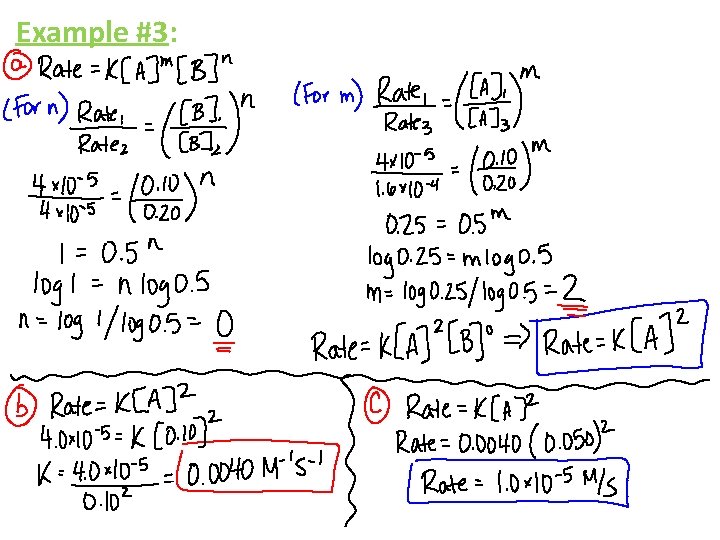 Example #3:
ⓐ Rate = K[A]^m [B]^n
(For n) Rate₁/Rate₂ = ([B]₁/[B]₂)^n
4×10^-5/4×10^-5 = (0.10/0.20)^n
1 = 0.5^n
log 1 = n log 0.5
n = log 1/log 0.5 = 0
(For m) Rate₁/Rate₃ = ([A]₁/[A]₃)^m
4×10^-5/1.6×10^-4 = (0.10/0.20)^m
0.25 = 0.5^m
log 0.25 = m log 0.5
m = log 0.25/log 0.5 = 2
Rate = K[A]^2 [B]^0 ⇒ Rate = K[A]^2
ⓑ Rate = K[A]^2
4.0×10^-5 = K [0.10]^2
K = 4.0×10^-5/0.10^2 = 0.0040 M^-1 S^-1
ⓒ Rate = K[A]^2
Rate = 0.0040 (0.050)^2
Rate = 1.0×10^-5 M/s